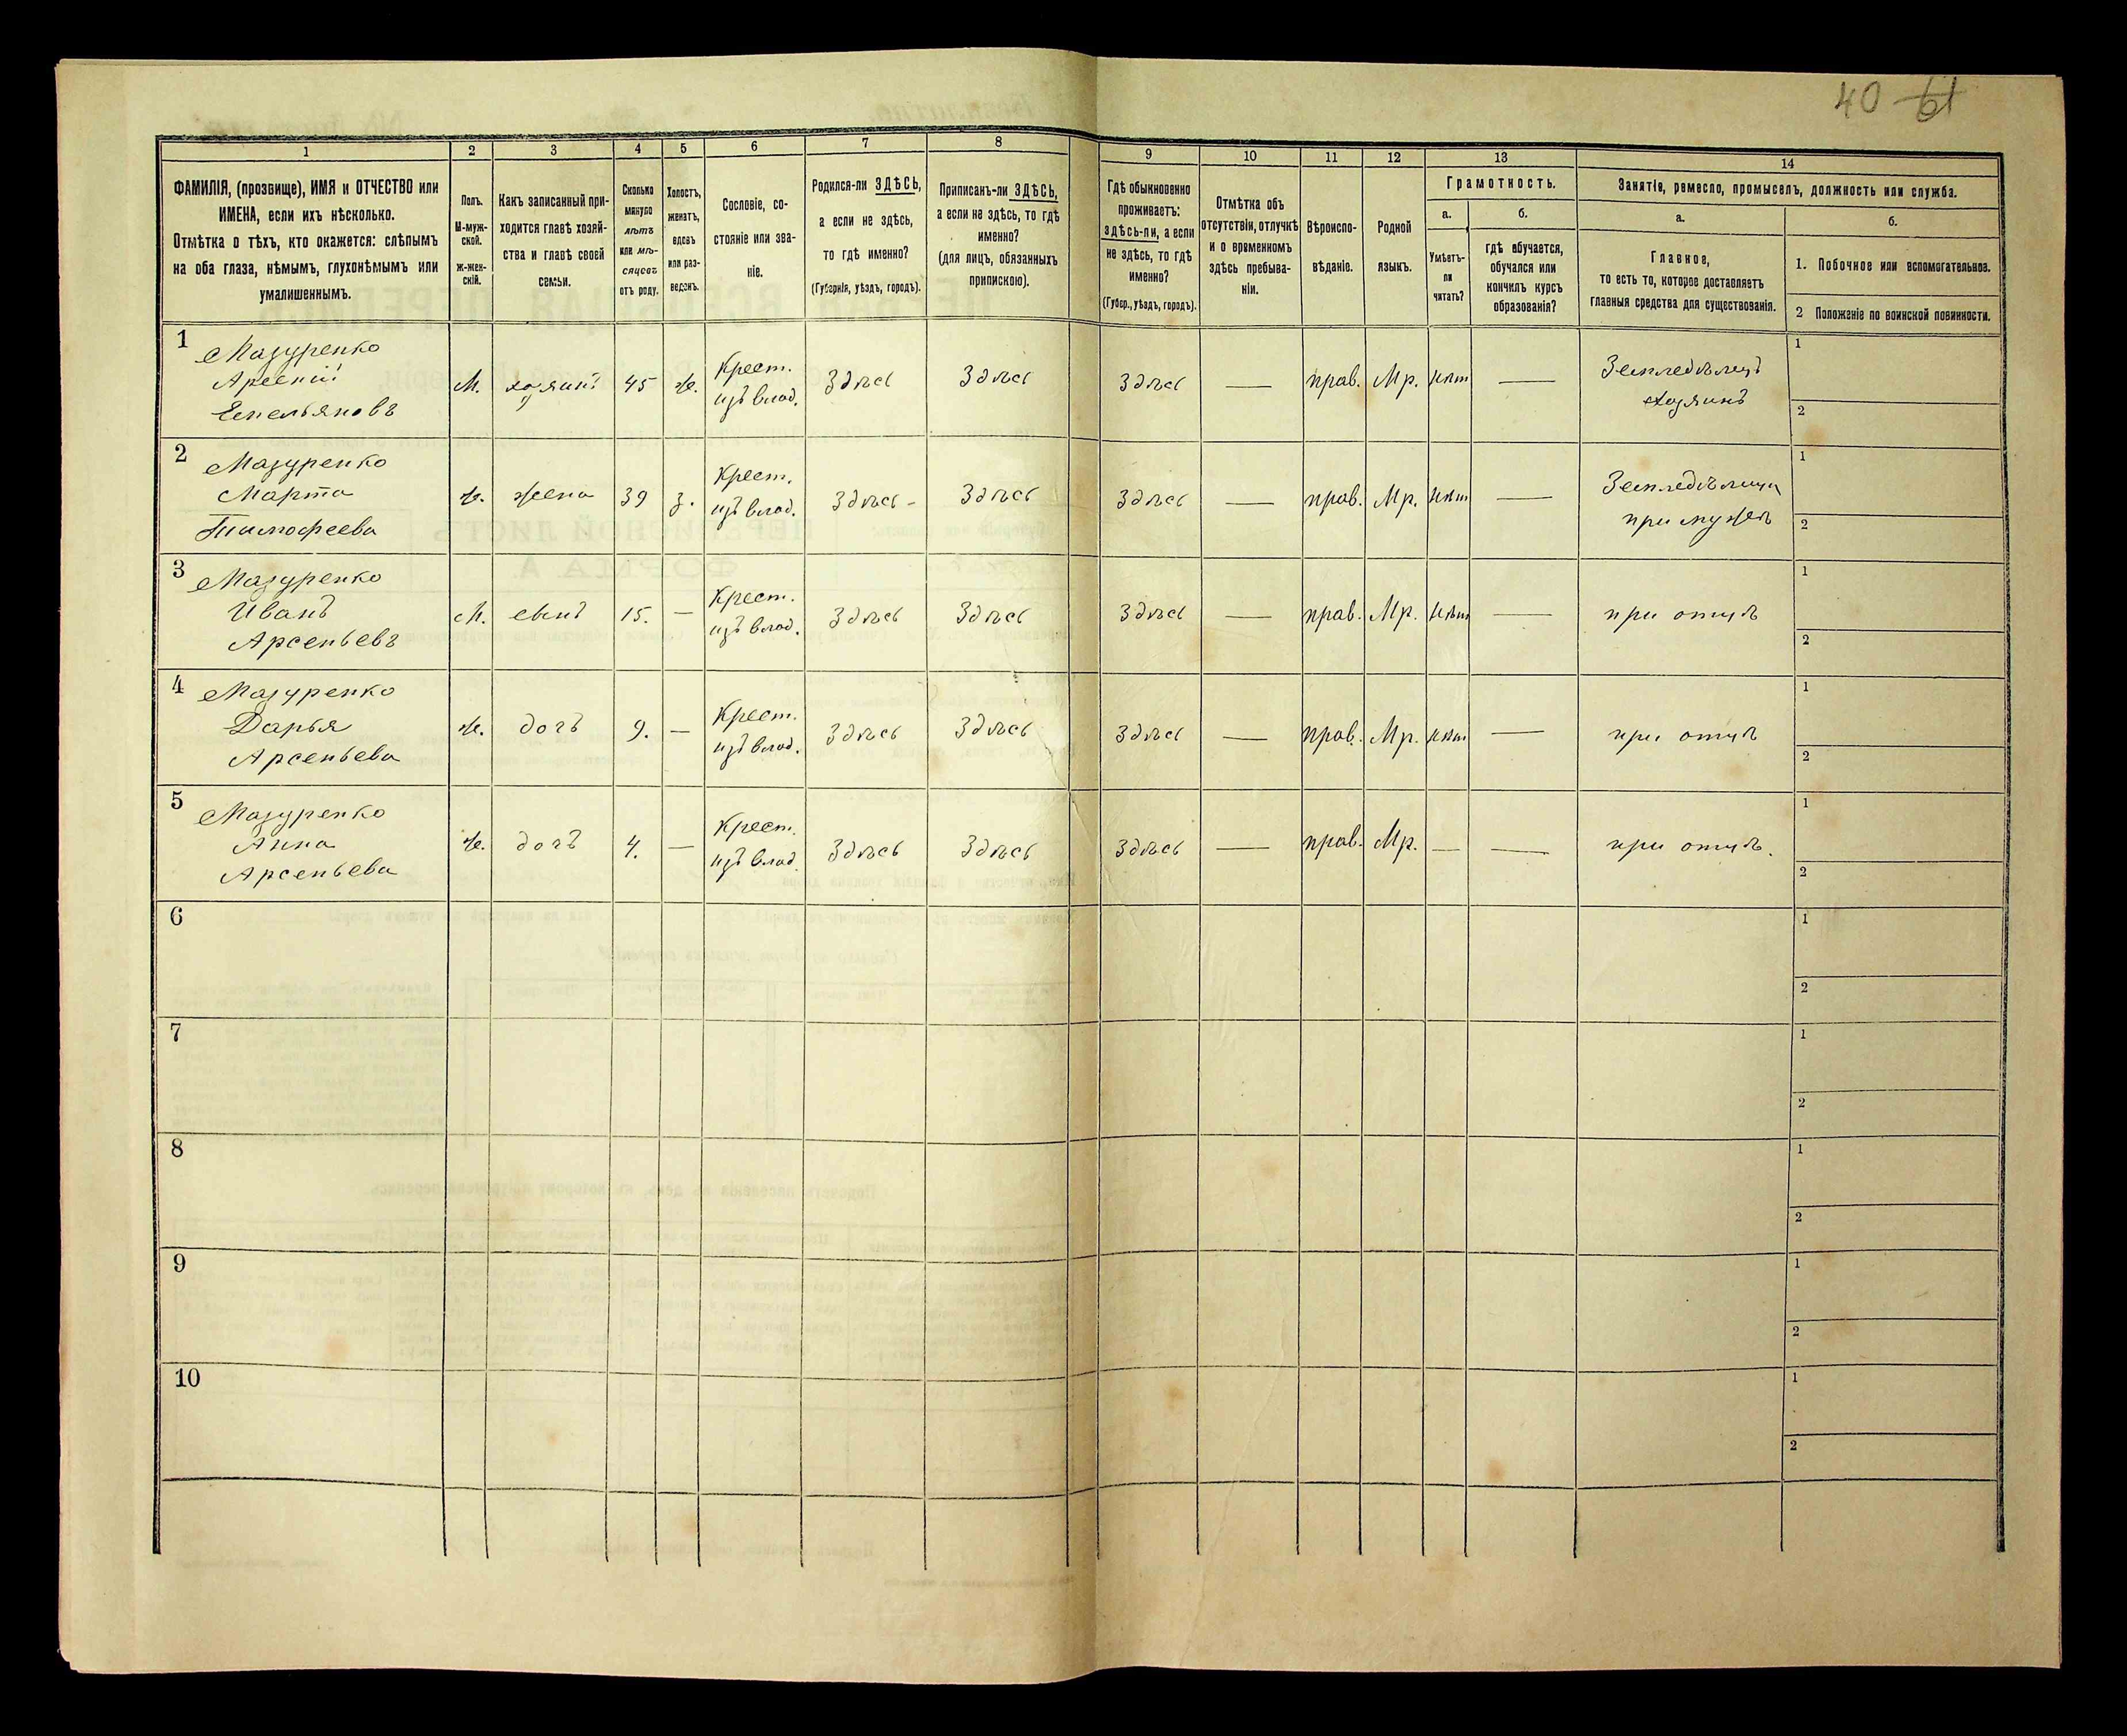 40 61
1
2
3
4
5
6
7
8
9
10
11
12
13
14
ФАМИЛІЯ, (прозвище), ИМЯ и ОТЧЕСТВО или
ИМЕНА, если ихъ нѣсколько.
Отмѣтка о тѣхъ, кто окажется: слѣпымъ
на оба глаза, нѣмымъ, глухонѣмымъ или
умалишеннымъ.
Полъ.
М-муж-
ской.
ж-жен-
скій.
Какъ записанный при-
ходится главѣ хозяй-
ства и главѣ своей
семьи.
Сколько
минуло
лѣтъ
или мѣ-
сяцевъ
отъ роду.
Холостъ,
женатъ,
вдовъ
или раз-
веденъ.
Сословіе, со-
стояніе или зва-
ніе.
Родился-ли ЗДѢСЬ,
а если не здѣсь,
то гдѣ именно?
(Губернія, уѣздъ, городъ).
Приписанъ-ли ЗДѢСЬ,
а если не здѣсь, то гдѣ
именно?
(для лицъ, обязанныхъ
припискою).
Гдѣ обыкновенно
проживаетъ:
здѣсь-ли, а если
не здѣсь, то гдѣ
именно?
(Губер., уѣздъ, городъ).
Отмѣтка объ
отсутствіи, отлучкѣ
и о временномъ
здѣсь пребыва-
ніи.
Вѣроиспо-
вѣданіе.
Родной
языкъ.
Грамотность.
а.
Умѣетъ-
ли
читать?
б.
гдѣ обучается,
обучался или
кончилъ курсъ
образованія?
Занятіе, ремесло, промыселъ, должность или служба.
а.
Главное,
то есть то, которое доставляетъ
главныя средства для существованія.
б.
1. Побочное или вспомогательное.
2 Положеніе по воинской повинности.
1
Мазуренко
Арсеній
Емельяновъ
М.
хозяинъ
45
ж.
Крест.
изъ влад.
Здѣсь
Здѣсь
Здѣсь
—
прав.
Мр.
нѣт
—
Земледѣлецъ
хозяинъ
1
2
2
Мазуренко
Марта
Тимофеева
ж.
жена
39
з.
Крест.
изъ влад.
Здѣсь -
Здѣсь
Здѣсь
—
прав.
Мр.
нѣт
—
при мужѣ
1
2
3
Мазуренко
Иванъ
Арсеньевъ
М.
сынъ
15.
—
Крест.
изъ влад.
Здѣсь
Здѣсь
Здѣсь
—
прав.
Мр.
нѣт
—
при отцѣ
1
2
4
Мазуренко
Дарья
Арсеньева
ж.
дочь
9.
—
Крест.
изъ влад.
Здѣсь
Здѣсь
Здѣсь
—
прав.
Мр.
нѣт
—
при отцѣ
1
2
5
Мазуренко
Анна
Арсеньева
ж.
дочь
4.
—
Крест.
изъ влад.
Здѣсь
Здѣсь
Здѣсь
—
прав.
Мр.
—
—
при отцѣ.
1
2
6
1
2
7
1
2
8
1
2
9
1
2
10
1
2